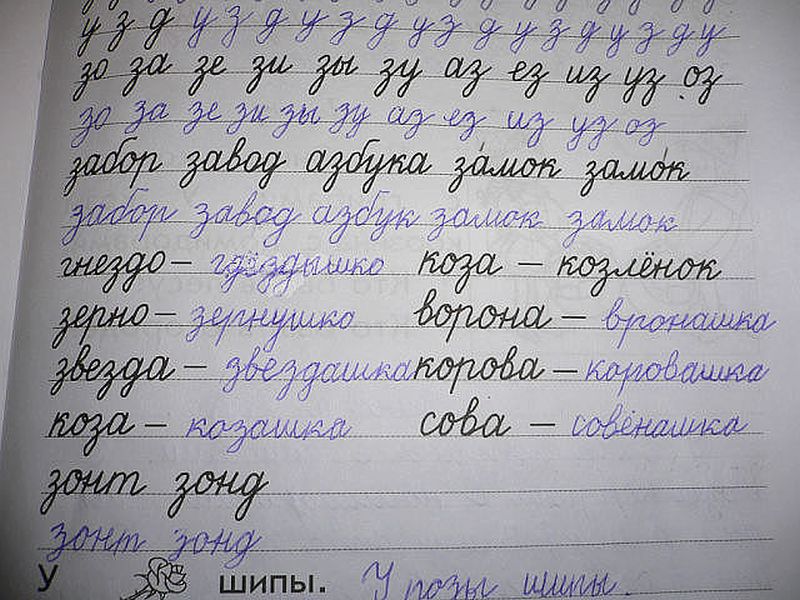 у з д у з д у з д у з д у з д у з д у
зо за зе зи зы зу аз ез из уз оз
зо за зе зи зы зу аз ез из уз оз
забор завод азбука за́мок замо́к
забор завод азбук замок замок
гнездо – гдёздышко коза – козлёнок
зерно – зернушко ворона – вронашка
звезда – звёздашка корова – коровашка
коза – козашка сова – совёнашка
зонт зонд
зонт зонд
У шипы. У розы шипы.